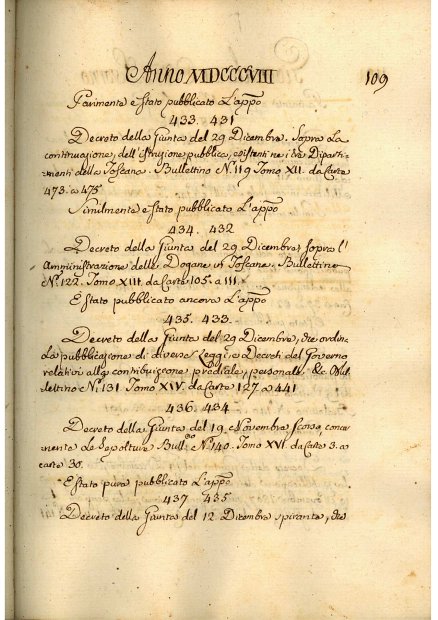 Anno MDCCCVIII 109
Parimente e stato pubblicato l'appo
433. 431
Decreto della Giunta del 29 Dicembre. Sopra la
continuazione dell'Istruzione pubblica, esistenti ne i tre Diparti-
menti della Toscana. Bullettino N. 119 Tomo XII. da Carte
473. a 475
Similmente e stato pubblicato l'appo
434. 432
Decreto della Giunta del 29 Dicembre sopra l'
Amministrazione delle Dogane in Toscana. Bullettino
No. 122. Tomo XIII. da Carte 105. a 111.
E stato pubblicato ancora l'appo
435. 433.
Decreto della Giunta del 29 Dicembre, che ordina
La pubblicazione di diverse Leggi, e Decreti del Governo
relativi alla contribuzione prediale, personale &c. Bul-
lettino No. 131 Tomo XIV. da Carte 127. a 441
436. 434
Decreto della Giunta del 19. Novembre scorso, concer-
nente Le Sepolture Bull.no No. 140. Tomo XVI. da Carte 3. a
carte 30.
E stato pure pubblicato l'appo
437 435
Decreto della Giunta del 12 Dicembre spirante, che